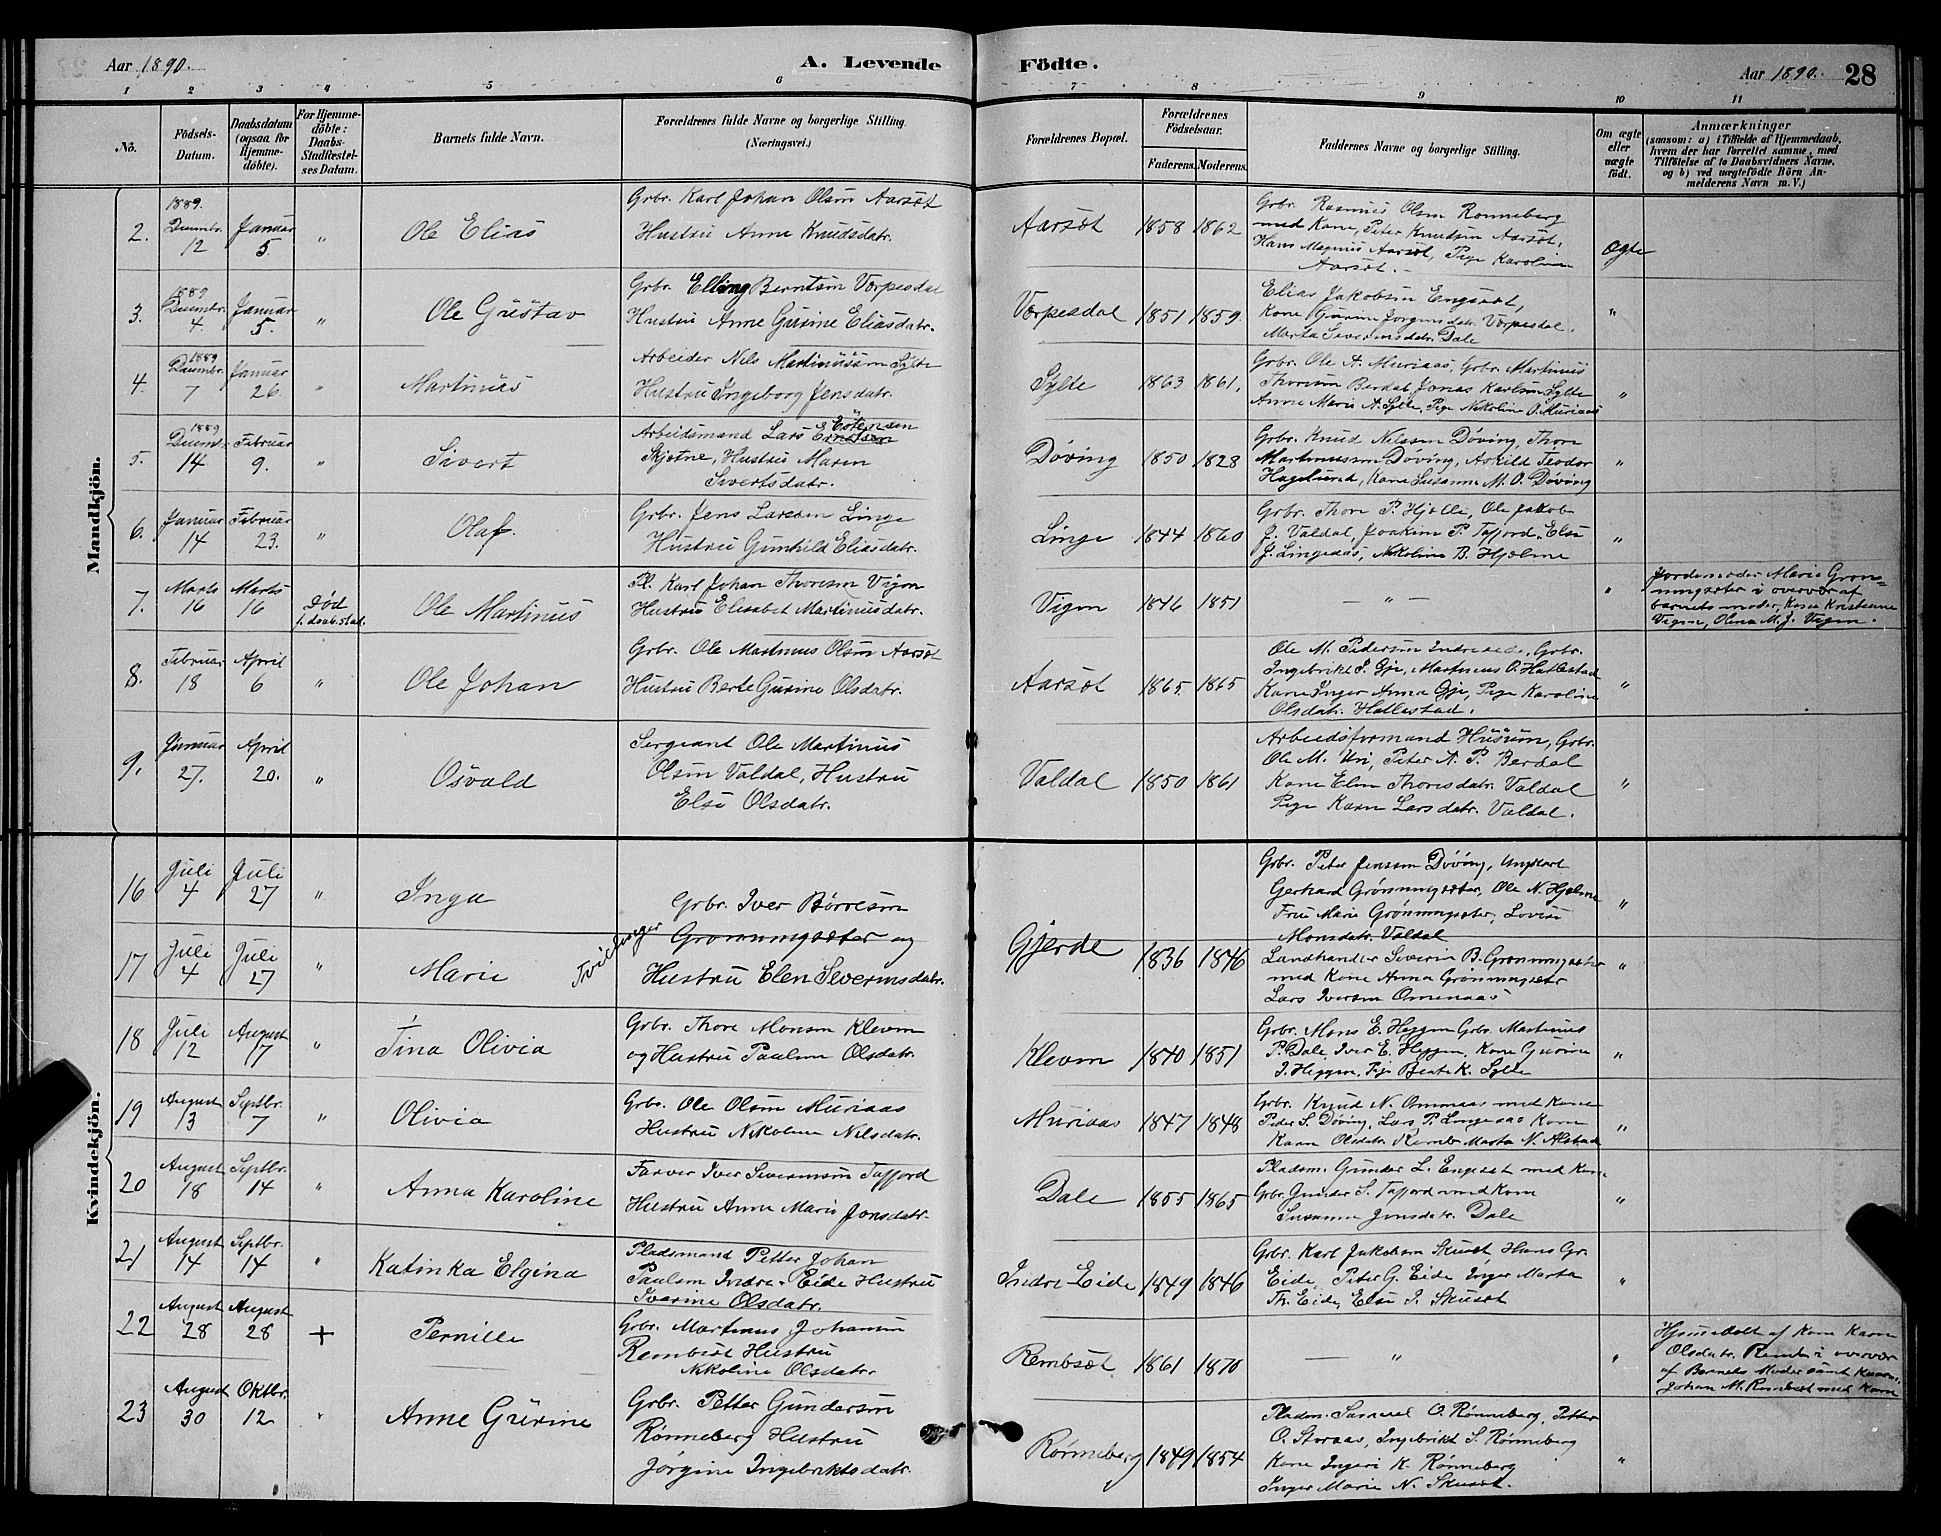 Aar 1890.
A. Levende
Födte.
Aar 1890.
28
1 2 3 4 5 6 7 8 9 10 11
No.
Födsels-
Datum.
Daabsdatum
(ogsaa for
Hjemme-
döbte).
For Hjemme-
döbte:
Daabs-
Stadfæstel-
ses Datum.
Barnets fulde Navn.
Forældrenes fulde Navne og borgerlige Stilling.
(Næringsvei.)
Forældrenes Bopæl.
Forældrenes
Födselsaar.
Faderens. Moderens.
Faddernes Navne og borgerlige Stilling.
Om ægte
eller
uægte
født.
Anmærkninger
(saasom: a) i Tilfælde af Hjemmedaab,
hvem der har forrettet samme, med
Tilföielse af to Daabsvidners Navne.
og b) ved uægtefödte Börn An-
melderens Navn m. V.)
Mandkjön.
2.
1889.
Decembr.
12
Januar
5.
"
Ole Elias
Grbr. Karl Johan Olsen Aarsöt
Hustru Anne Knudsdatr.
Aarsöt
1858 1862
Grbr. Rasmus Olsen Ronneberg
med Kone, Peter Knudsen Aarsöt,
Hans Magnus Aarsöt, Pige Karoline
Aarsöt.
ægte
3.
1889
Decembr.
4
Januar
5.
"
Ole Gustav
Grbr. Elling Berntsen Verpesdal
Hustru Anne Gurine Eliasdatr.
Verpesdal
1851 1859.
Elias Jakobsen Engeset,
Kone Gurine Jorgensdatr. Verpesdal.
Marta Severinsdatr. Dale
"
4.
1889
Decembr.
7
Januar
26.
"
Martinus
Arbeider Nils Martinussen Sylte
Hustru Ingeborg Jensdatr.
Sylte
1863 1861.
Grbr. Ole A. Muriaas, Grbr. Martinus
Thoresen Berdal, Jonas Karlsen Sylte
Anne Marie A. Sylte, Pige Nikoline O. Muriaas
"
5.
1889
Decemb.
14
Februar
9.
"
Sivert
Arbeidsmand Lars Estensen
Skjetne, Hustru Maren
Sivertsdatr.
Döving
1850 1828
Grbr. Knud Nilssen Döving, Thore
Martinussen Döving, Askild Teodor
Hagelund, Kone Susanne M. O. Döving
"
6.
Januar
14
Februar
23.
"
Olaf.
Grbr. Jens Larsen Linge
Hustru Gunhild Eliasdatr.
Linge
1844 1860
Grbr. Thore P. Hjelle, Ole Jakob
J. Valdal, Joakim P. Tafjord, Else
J. Lingeaas, Nikoline B. Hjelme
"
7.
Marts
16
Marts
16
Död
f. daab. stad.
Ole Martinus
Pl. Karl Johan Thoresen Vigen
Hustru Elisabet Martinusdatr.
Vigen
1846 1851
— " —
"
Jordemoder Marie Gron-
ningsæter i overvær af
barnets moder, Kone Kristiane
Vigen, Oline M. J. Vigen.
8.
Februar
18
April
6
"
Ole Johan
Grbr. Ole Martinus Olsen Aarsöt
Hustru Berte Gurine Olsdatr.
Aarsöt
1865. 1865
Ole M. Pedersen Indreeide, Grbr.
Ingebrikt P. Gje, Martinus O. Hallestad
Kone Inger Anna Gje, Pige Karoline
Olsdatr. Hallestad.
"
9.
Januar
27.
April
20.
"
Osvald
Sergeant Ole Martinus
Olsen Valdal, Hustru
Else Olsdatr.
Valdal
1850 1861
Arbeidsformand Husum, Grbr.
Ole M. Uri, Peter A. P. Berdal
Kone Elen Thoresdatr. Valdal
Pige Karn Larsdatr. Valdal.
"
Kvindekjön.
16
Juli
4
Juli
27
"
Inga
Grbr. Iver Börresen
Gronningsæter og
Hustru Elen Severinsdatr.
Tvillinger
Gjerde
1836 1846
Grbr. Peter Jenssen Döving, Ungkarl
Gerhard Grönningsæter, Ole N. Hjelme
Fru Marie Grönningsæter, Lovise
Monsdatr. Valdal
"
17
Juli
4
Juli
27
"
Marie
Landhandler Severin B. Grönningsæter
med Kone Anna Grönningsæter
Lars Iversen Omenaas
"
18
Juli
12
August
17
"
Tina Olivia
Grbr. Thore Monsen Kleven
og Hustru Pauline Olsdatr.
Kleven
1840 1851
Grbr. Mons E. Heggen Grbr. Martinus
P. Dale, Iver E. Heggen, Kone Gurine
I. Heggen, Pige Beate K. Sylte
"
19
August
13
Septbr.
7
"
Olivia
Grbr. Ole Olsen Muriaas
Hustru Nikoline Nilsdatr.
Muriaas
1847 1848
Grbr. Knud N. Omenaas med Kone
Peder S. Döving, Lars P. Lingeaas Kone
Karn Olsdatr. Marta N. Alstad
"
20
August
18
Septbr.
14
"
Anna Karoline
Farver Iver Severinsen Tafjord
Hustru Anne Marie Jonsdatr.
Dale
1855 1865
Pladsm. Gunder L. Engeset med Kone
Grbr. Gunder S. Tafjord med Kone
Susanne Jonsdatr. Dale
"
21
August
14
Septbr.
14
"
Katinka Elgina
Pladsmand Petter Johan
Paulsen Indre-Eide Hustru
Iverine Olsdatr.
Indre Eide
1849 1846
Grbr. Karl Jakobsen Skuset, Hans Gr.
Eide, Peter G. Eide, Inger Marta
Th. Eide, Else I. Skuset
"
22
August
28
August
28
+
Pernille
Grbr. Martinus Johansen
Rembsöt Hustru
Nikoline Olsdatr.
Rembsöt
1861 1870
— " —
"
Hjemedöbt af Kone Karn
Olsdatr. Remb i overvær
af Barnets Moder samt
Johan M. Rembsöt med Kone
23
August
30
Oktbr.
12
"
Anne Gurine
Grbr. Petter Gundersen
Rönneberg Hustru
Jørgine Ingebriktsdatr.
Rönneberg
1849 1854
Pladsm. Samuel O. Rönneberg, Petter
O. Storaas, Ingebrikt S. Rönneberg
Kone Ingeri K. Rönneberg
Inger Marie N. Skuset.
"